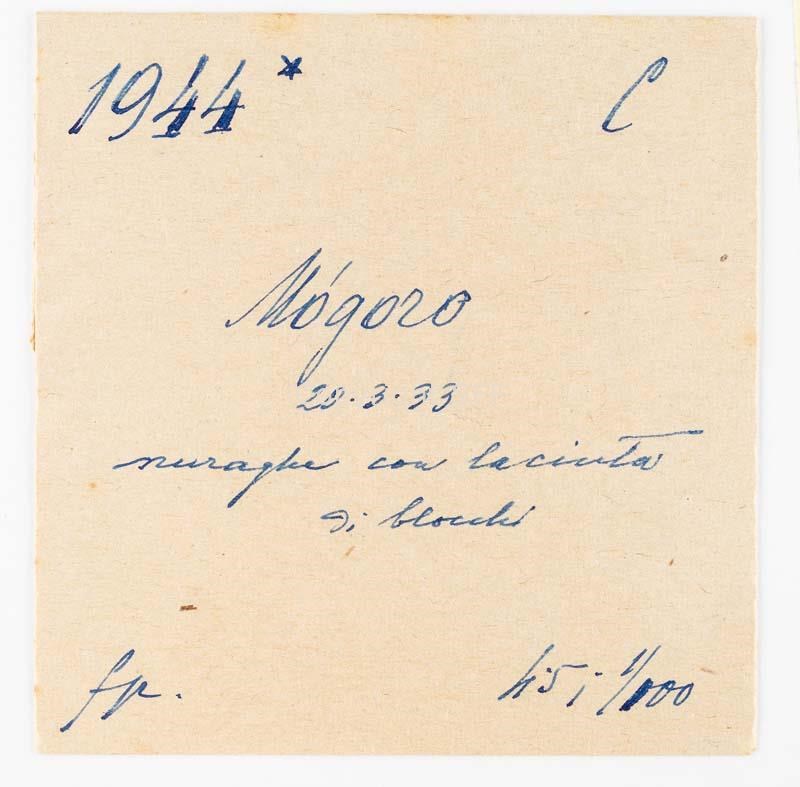 1944* C
Mógoro
20.3.33
nuraghe con la cinta
di blocchi
fp. 4.5; 1/100